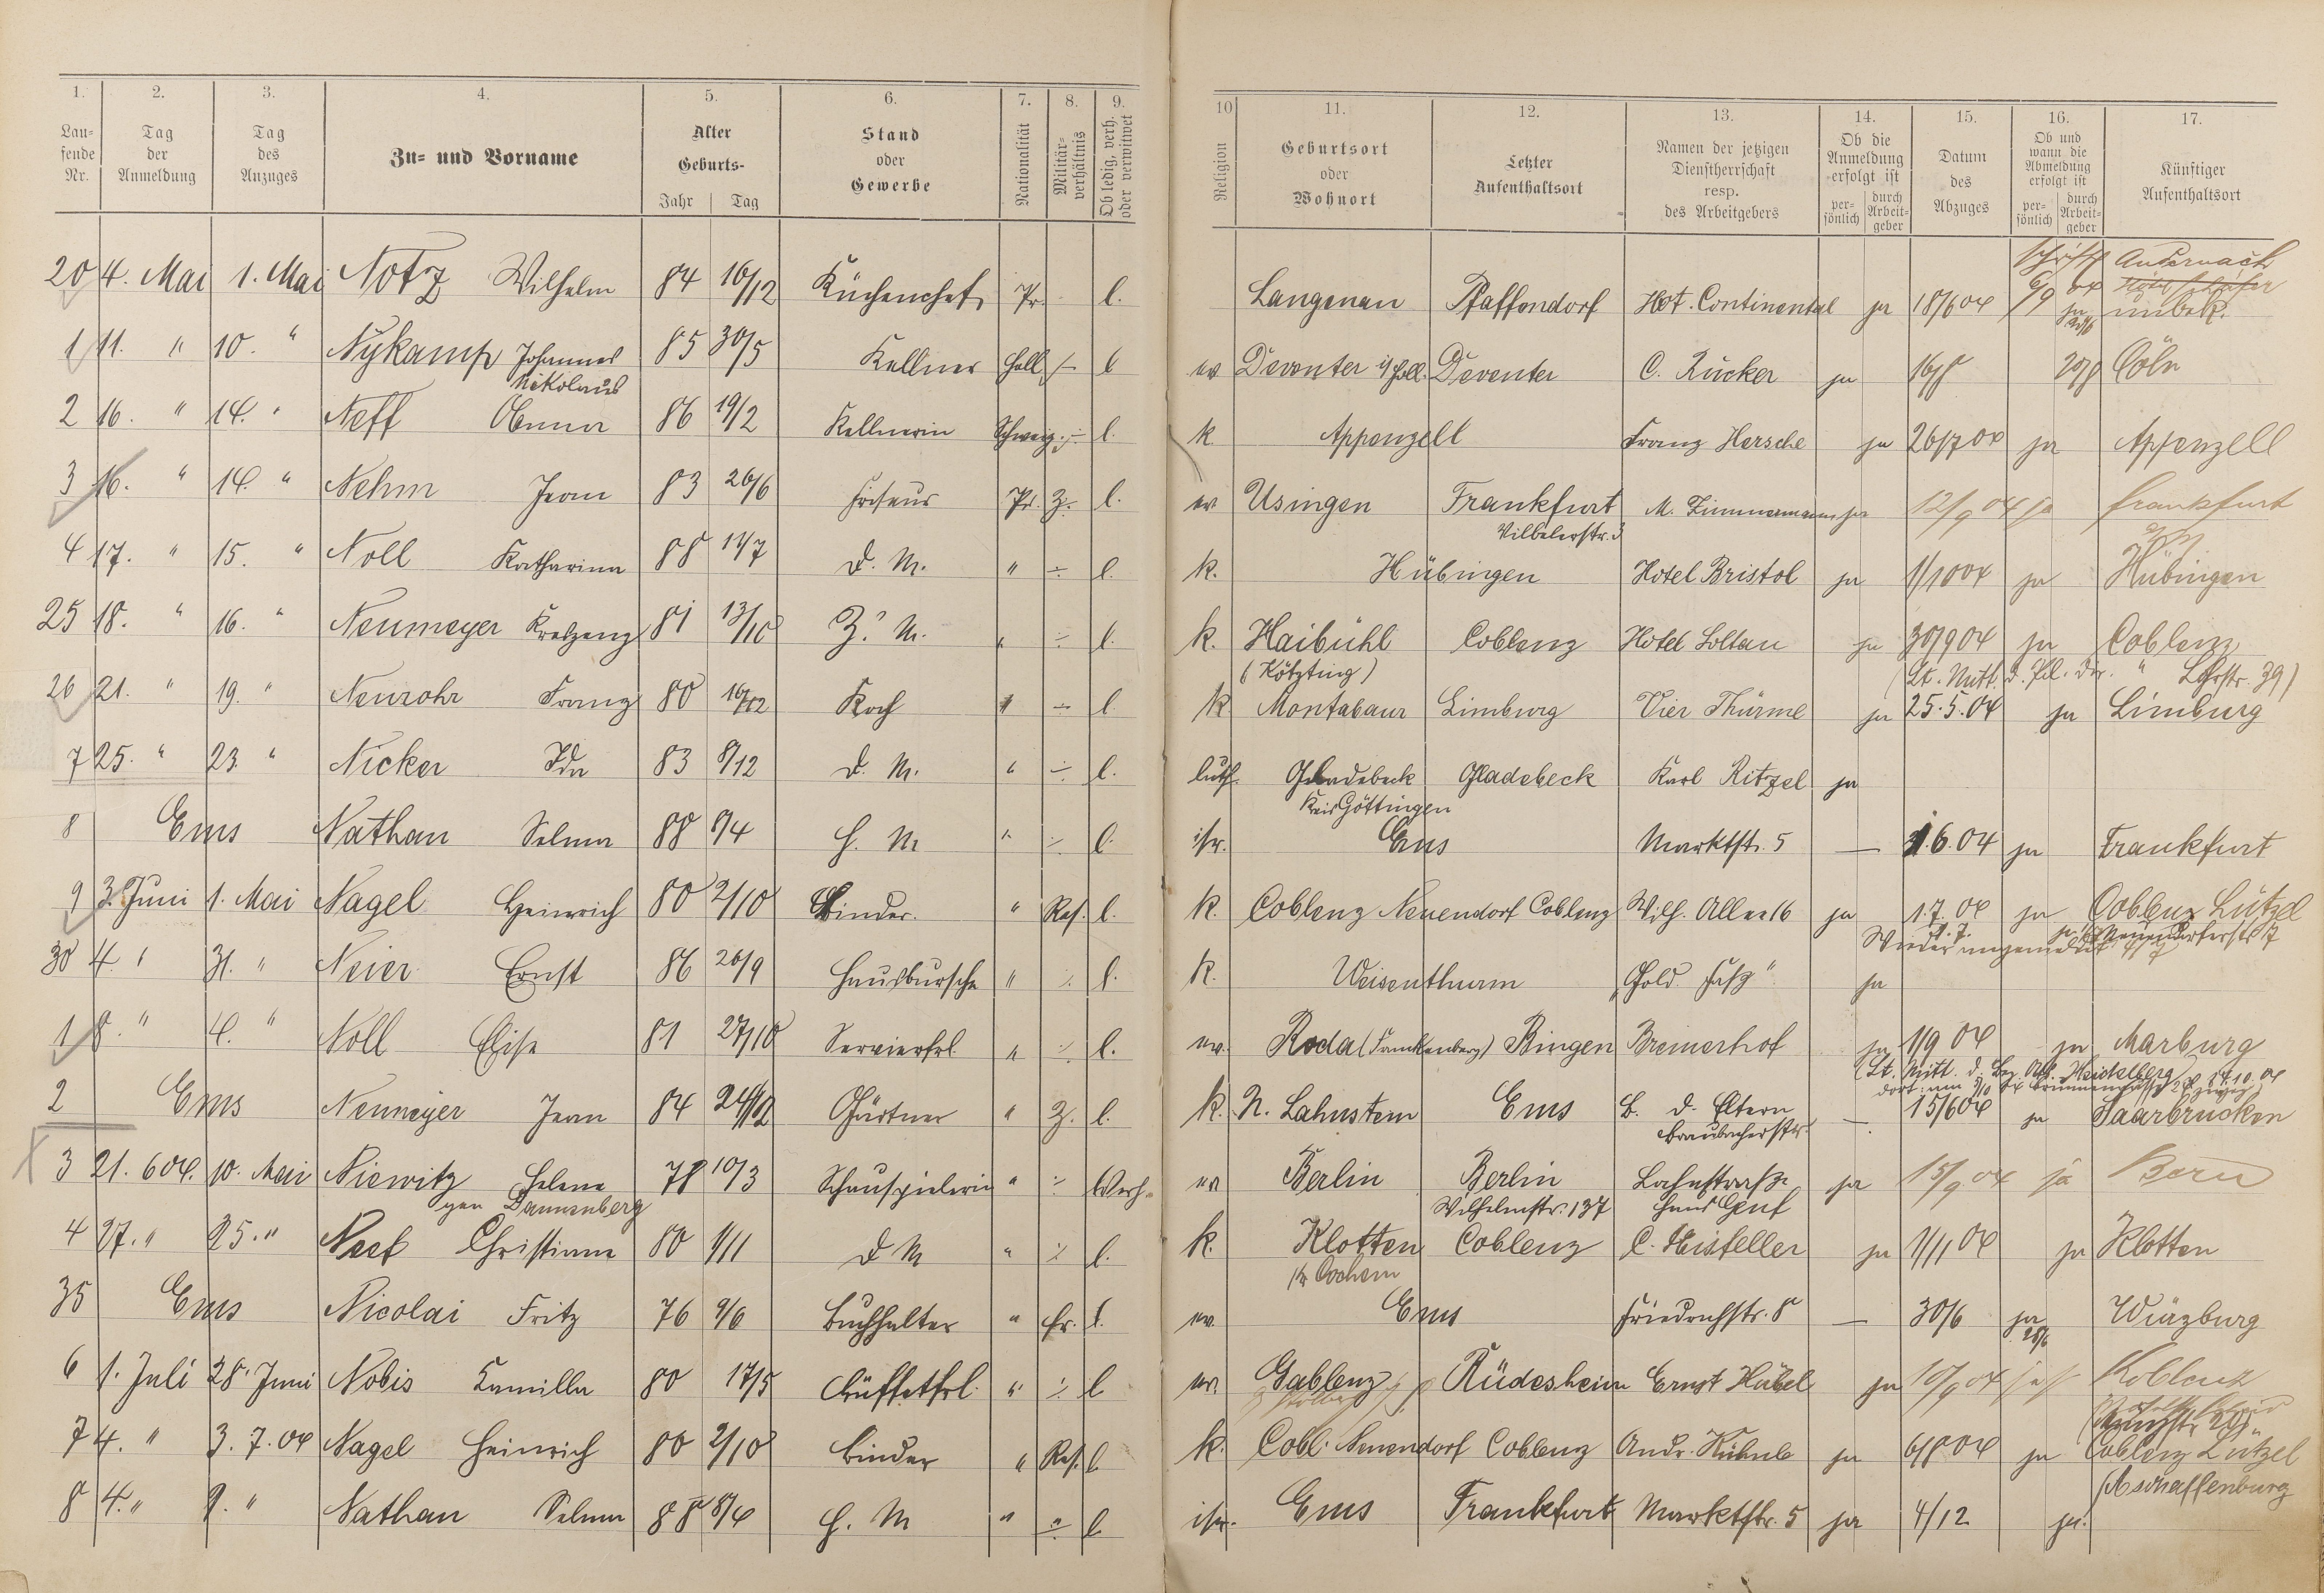 1. 2. 3. 4. 5. 6. 7. 8. 9. 10 11. 12. 13. 14. 15. 16. 17.
Laufende Nr. Tag der Anmeldung Tag des Anzuges Zu- und Vorname Alter Geburts- Jahr Tag Stand oder Gewerbe Nationalität Militärverhältnis Ob ledig, verh. oder verwitwet Religion Geburtsort oder Wohnort Letzter Aufenthaltsort Namen der jetzigen Dienstherrschaft resp. des Arbeitgebers Ob die Anmeldung erfolgt ist persönlich durch Arbeitgeber Datum des Abzuges Ob und wann die Abmeldung erfolgt ist persönlich durch Arbeitgeber Künftiger Aufenthaltsort
20 4. Mai 1. Mai Notz Wilhelm 84 16/12 Küchenchef Pr. l. Langenau Pfaffendorf Hot. Continental ja 18/6 04 Andernach
unbek.
1 11. " 10. " Nykamp Johannes 85 30/5 Kellner Holl. l ev Deventer i/Holl. Deventer C. Rücker ja 16/8 20/8 Cöln
Nikolaus
2 16. " 14. " Neff Anna 86 19/2 Kellnerin Schweiz. ÷ l. k Appenzell Franz Hersche ja 26/7 04 ja Appenzell
3 16. " 14. " Nehm Jean 83 26/6 Friseur Pr. Z. l. ev Usingen Frankfurt M. Zimmermann ja 12/9 04 ja Frankfurt
Vilbelerstr. 3
4 17. " 15. " Noll Katharina 88 14/7 D. M. " ÷ l. k. Hübingen Hotel Bristol ja 1/10 04 ja Hübingen
25 18. " 16. " Neumeyer Kreszenz 81 13/10 Z. M. " ÷ l. k. Haibühl Coblenz Hotel Soltau ja 30/9 04 ja Coblenz
(Kötzting) Lohrstr. 39)
26 21. " 19. " Neurohr Franz 80 16/12 Koch " ÷ l k Montabaur Limburg Vier Thürme ja 25.5.04 ja Limburg
7 25. " 23. " Nicker Ida 83 8/12 D. M. " ÷ l. luth. Gladebeck Gladebeck Karl Ritzel ja
Kreis Göttingen
8 Ems Nathan Selma 88 8/4 H. M " ÷ l. isr. Ems Marktstr. 5 — 1.6.04 ja Frankfurt
9 3. Juni 1. Mai Nagel Heinrich 80 2/10 Binder. " Res. l. k. Coblenz Neuendorf Coblenz Wilh. Allee 16 ja 1.7.04 ja Coblenz Lützel
Wieder angemeldet
30 4. " 31. " Neier Ernst 86 26/9 Hausbursche " ÷ l. k. Weisenthurm "Gold. Faß" ja
1 8. " 4. " Noll Elise 81 27/10 Servierfrl. " ÷ l. ev. Roda (Frankenberg) Bingen Bremerhof ja 1/9 04 ja Marburg
2 Ems Neumeyer Jean 84 24/12 Gärtner " Z. l. k. N. Lahnstein Ems B. d. Eltern — 15/6 04 ja Saarbrücken
Braubacherstr.
3 21. 6 04. 10. Mai Niewitz Helene 78 10/3 Schauspielerin " ÷ verh. ev Berlin Berlin Lahnstraße ja 15/9 04 ja Bern
gen Dannenberg Wilhelmstr. 137 Haus Genf
4 27. " 25. " Neef Christiane 80 1/11 D M " ÷ l. k. Klotten Coblenz C. Hisfeller ja 1/11 04 ja Klotten
Kr Cochem
35 Ems Nicolai Fritz 76 9/6 Buchhalter " Er. l. ev. Ems Friedrichstr. 8 — 30/6 ja Würzburg
28/6
6 1. Juli 28. Juni Nobis Kamilla 80 17/5 Büffetfrl. " ÷ l ev. Gablenz Rüdesheim Ernst Häbel ja 10/9 04 Koblenz
7 4. " 3. 7. 04 Nagel Heinrich 80 2/10 Binder " Res. l. k. Cobl. Neuendorf Coblenz Andr. Kühnle ja 6/8 04 ja Coblenz Lützel
8 4. " 2. " Nathan Selma 88 8/4 H. M " ÷ l. isr. Ems Frankfurt Marktstr. 5 ja 4/12 ja. Aschaffenburg